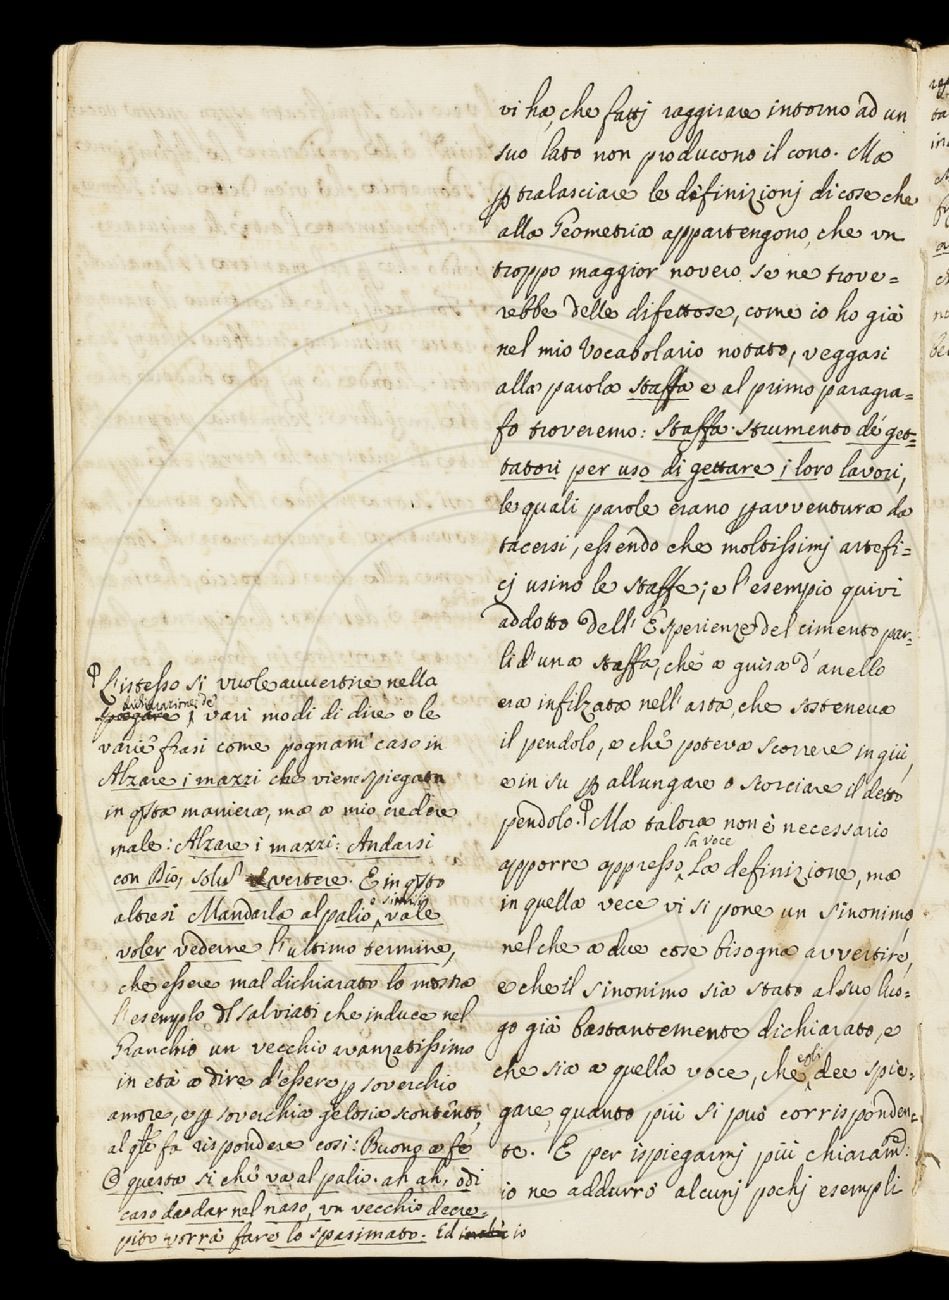 vi ha, che fatti raggirare intorno ad un
suo lato non producono il cono. Ma
ꝑ tralasciare le difinizionj di cose che
alla Geometria appartengono, che vn
troppo maggior novero se ne trove=
rebbe delle difettose, come io ho già
nel mio Vocabolario notato, veggasi
alla parola staffa e al primo paragra=
fo troveremo: Staffa. Strumento de' get=
tatori per uso di gettare i loro lavori,
le quali parole erano ꝑavventura da
tacersi, essendo che moltissimj artefi=
cj usino le staffe; e l'esempio quivi
addotto dell' Esperienze del cimento par=
li d'una staffa, che a guisa d'anello
era infilzata nell'asta, che sosteneva
il pendolo, e che poteva scorrere in giù,
e in su ꝑ allungare o scorciare il detto
pendolo. Ma talora non è necessario
la voce
apporre appresso, La definizione, ma
in quella vece vi si pone un sinonimo,
nel che a due cose bisogna avvertire,
e che il sinonimo sia stato al suo luo=
go già bastantemente dichiarato, e
che sia a quella voce, che egli dee spie=
gare, quanto più si può corrisponden=
te. E per ispiegarmj più chiaram:
io ne addurrò alcunj pochj esempli
L'istesso si vuole avvertire nella
dichiarazione de'
spiegare i vari modi di dire e le
varie frasi come pognam' caso in
Alzare i mazzi che viene spiegata
in qsta maniera, ma a mio credere
male: Alzare i mazzi: Andarsi
con Dio, solũ vertere. E in qsto
altresi Mandarla al palio, vale
voler vederne l'ultimo termine,
che essere mal dichiarato lo mostra
l'esemplo dl Salviati che induce nel
Granchio un vecchio avanzatissimo
in età a dire d'essere ꝑ soverchio
amore, e ꝑ soverchia gelosia scontento,
al qle fa rispondere cosi: Buono a fe
O questa si che va al palio. ah ah, odi
caso da dar nel naso, vn vecchio decre=
pito vorrà fare lo spasimato. Ed io